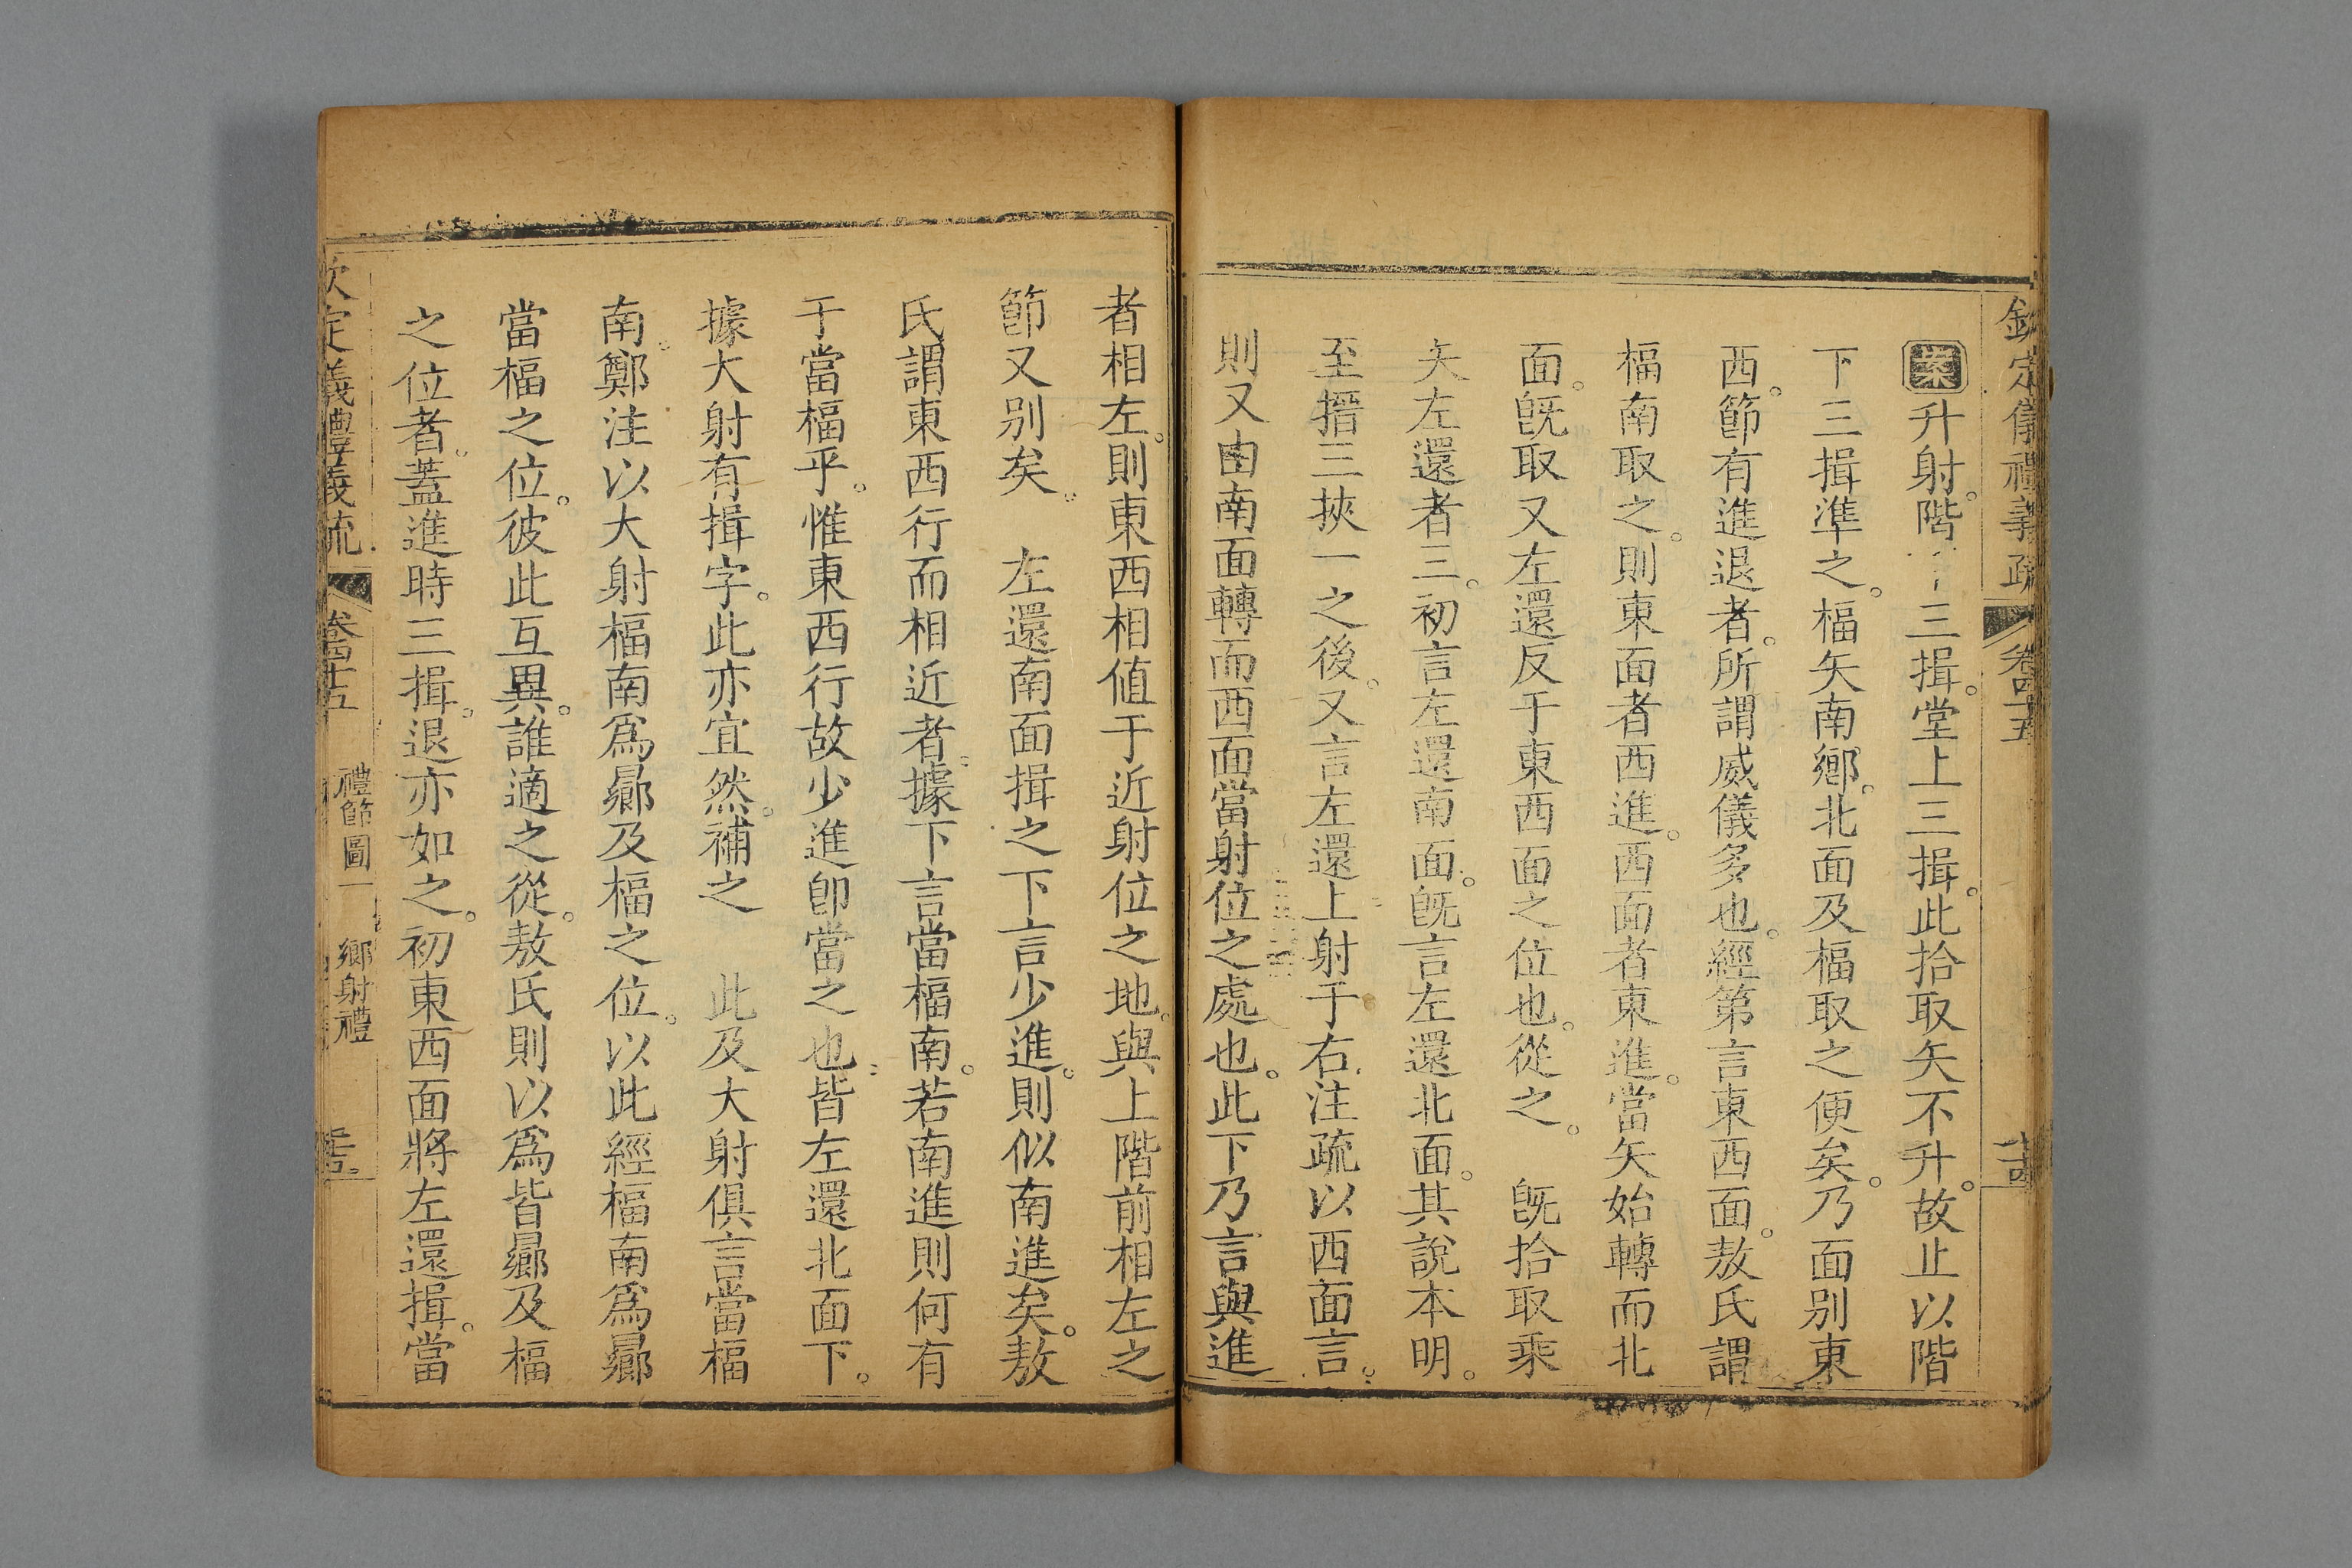 欽定儀禮義疏 卷四十五
案升射。階下三揖。堂上三揖。此拾取矢不升。故止以階
下三揖準之。楅矢南鄉。北面及楅取之便矣。乃面别東
西。節有進退者。所謂威儀多也。經第言東西面。敖氏謂
楅南取之。則東面者西進。西面者東進。當矢始轉而北
面。旣取又左還反于東西面之位也。從之。 旣拾取乘
矢左還者三。初言左還南面。旣言左還北面。其說本明。
至搢三挾一之後。又言左還上射于右。注疏以西面言。
則又由南面轉而西面當射位之處也。此下乃言與進
者相左。則東西相値于近射位之地。與上階前相左之
節又别矣。 左還南面揖之下言少進。則似南進矣。敖
氏謂東西行而相近者。據下言當楅南。若南進則何有
于當楅乎。惟東西行故少進卽當之也。皆左還北面下。
據大射有揖字。此亦宜然。補之 此及大射俱言當楅
南。鄭注以大射楅南爲曏及楅之位。以此經楅南爲曏
當楅之位。彼此互異。誰適之從。敖氏則以爲皆曏及楅
之位者。蓋進時三揖。退亦如之。初東西面將左還揖。當
欽定義禮義疏 卷四十五 禮節圖一 鄉射禮